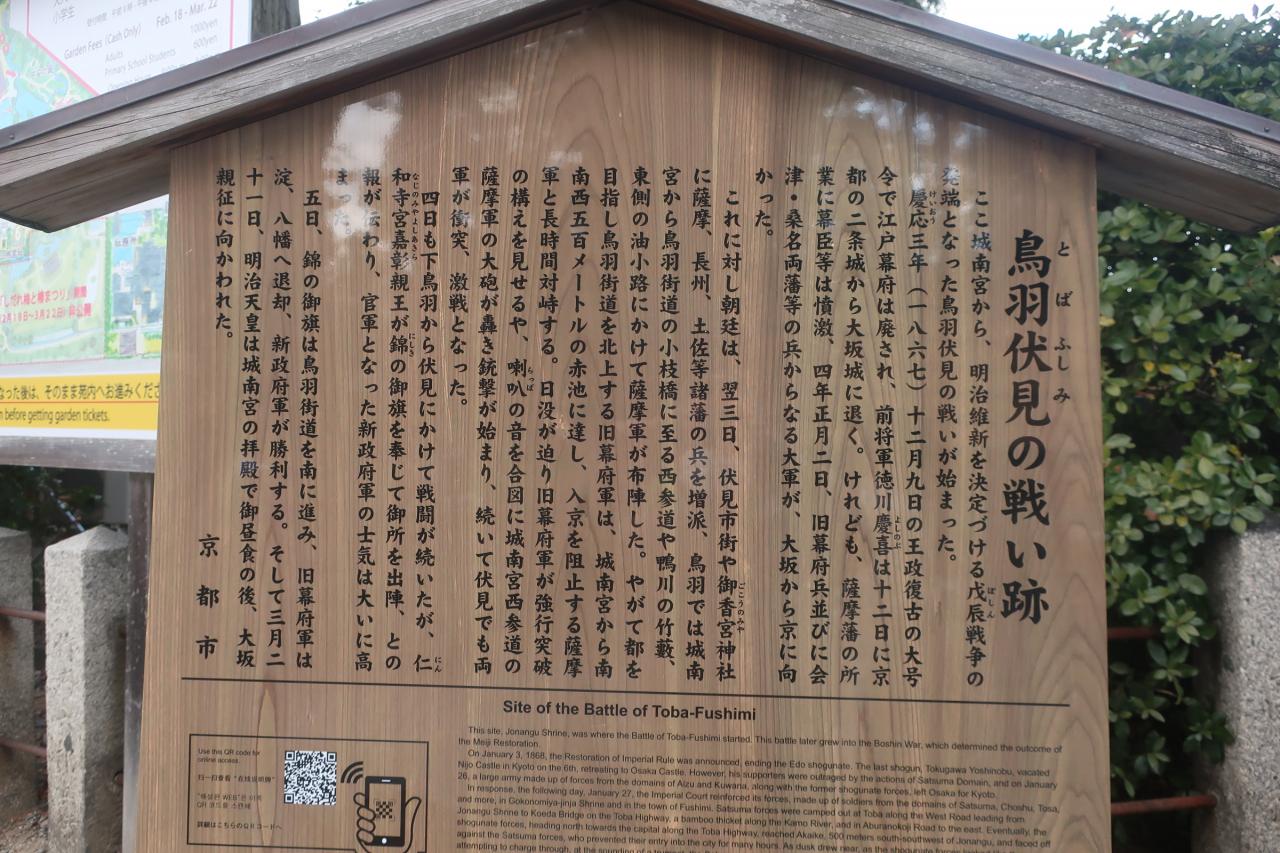 小学生
Feb. 18 - Mar. 22
Garden Fees (Cash Only)
Adults 1000yen
Primary School Students 600yen
before getting garden tickets.
鳥羽伏見の戦い跡
とばふしみ
ここ城南宮から、明治維新を決定づける戊辰戦争の
ぼしん
発端となった鳥羽伏見の戦いが始まった。
慶応三年（一八六七）十二月九日の王政復古の大号
けいおう
令で江戸幕府は廃され、前将軍徳川慶喜は十二日に京
よしのぶ
都の二条城から大坂城に退く。けれども、薩摩藩の所
業に幕臣等は憤激、四年正月二日、旧幕府兵並びに会
津・桑名両藩等の兵からなる大軍が、大坂から京に向
かった。
これに対し朝廷は、翌三日、伏見市街や御香宮神社
ごこうのみや
に薩摩、長州、土佐等諸藩の兵を増派、鳥羽では城南
宮から鳥羽街道の小枝橋に至る西参道や鴨川の竹藪、
東側の油小路にかけて薩摩軍が布陣した。やがて都を
目指し鳥羽街道を北上する旧幕府軍は、城南宮から南
南西五百メートルの赤池に達し、入京を阻止する薩摩
軍と長時間対峙する。日没が迫り旧幕府軍が強行突破
の構えを見せるや、喇叭の音を合図に城南宮西参道の
らっぱ
薩摩軍の大砲が轟き銃撃が始まり、続いて伏見でも両
軍が衝突、激戦となった。
四日も下鳥羽から伏見にかけて戦闘が続いたが、仁
にん
和寺宮嘉彰親王が錦の御旗を奉じて御所を出陣、との
なじのみやよしあきら
にしき
報が伝わり、官軍となった新政府軍の士気は大いに高
まった。
五日、錦の御旗は鳥羽街道を南に進み、旧幕府軍は
淀、八幡へ退却、新政府軍が勝利する。そして三月二
十一日、明治天皇は城南宮の拝殿で御昼食の後、大坂
親征に向かわれた。
京都市
Site of the Battle of Toba-Fushimi
This site, Jonangu Shrine, was where the Battle of Toba-Fushimi started. This battle later grew into the Boshin War, which determined the outcome of
the Meiji Restoration.
On January 3, 1868, the Restoration of Imperial Rule was announced, ending the Edo shogunate. The last shogun, Tokugawa Yoshinobu, vacated
Nijo Castle in Kyoto on the 6th, retreating to Osaka Castle. However, his supporters were outraged by the actions of Satsuma Domain, and on January
26, a large army made up of forces from the domains of Aizu and Kuwana, along with the former shogunate forces, left Osaka for Kyoto.
In response, the following day, January 27, the Imperial Court reinforced its forces, made up of soldiers from the domains of Satsuma, Choshu, Tosa,
and more, in Gokonomiya-jinja Shrine and in the town of Fushimi. Satsuma forces were camped out at Toba along the West Road leading from
Jonangu Shrine to Koeda Bridge on the Toba Highway, a bamboo thicket along the Kamo River, and in Aburanokoji Road to the east. Eventually, the
shogunate forces, heading north towards the capital along the Toba Highway, reached Akaike, 500 meters south-southwest of Jonangu, and faced off
against the Satsuma forces, who prevented their entry into the city for many hours. As dusk drew near, as the shogunate forces
Use this QR code for
online access.
扫一扫查看"在线说明牌"
"해설판 WEB"은 이쪽
QR 코드를 스캔해
詳細はこちらのQRコードへ